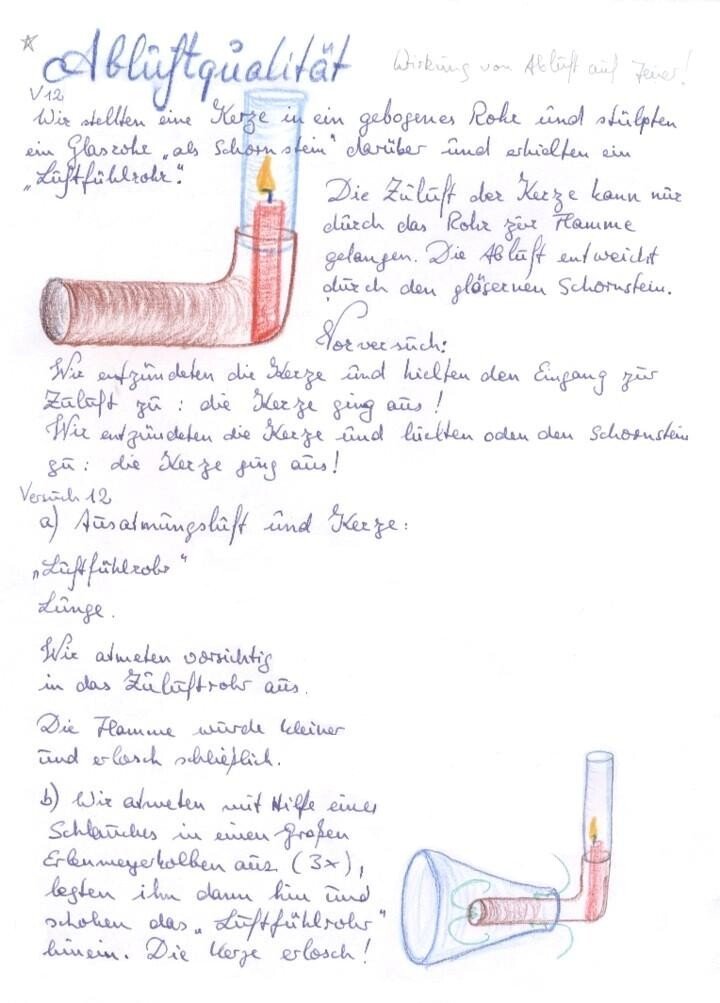 Abluftqualität
Wirkung von Abluft auf Feuer!
V 12
Wir stellten eine Kerze in ein gebogenes Rohr und stülpten
ein Glasrohr „als Schornstein" darüber und erhielten ein
„Luftfühlrohr".
Die Zuluft der Kerze kann nur
durch das Rohr zur Flamme
gelangen. Die Abluft entweicht
durch den gläsernen Schornstein.
Vorversuch:
Wir entzündeten die Kerze und hielten den Eingang zur
Zuluft zu: die Kerze ging aus!
Wir entzündeten die Kerze und hielten oben den Schornstein
zu: die Kerze ging aus!
Versuch 12
a) Ausatmungsluft und Kerze:
„Luftfühlrohr"
Lunge.
Wir atmeten vorsichtig
in das Zuluftrohr aus.
Die Flamme wurde kleiner
und erlosch schließlich.
b) Wir atmeten mit Hilfe eines
Schlauches in einen großen
Erlenmeyerkolben aus (3x),
legten ihn dann hin und
schoben das „Luftfühlrohr"
hinein. Die Kerze erlosch!